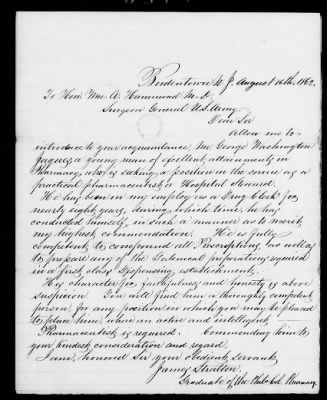 Bordentown N. J. August 14th. 1862.
To Hon. Wm. A. Hammond M. D.
Surgeon General U.S. Army
Dear Sir
Allow me to
introduce to your acquaintance, Mr. George Washington
Jaques a young man of excellent attainments in
Pharmacy, who is seeking a position in the service as a
practical pharmaceutist or Hospital Steward.
He has been in my employ as a Drug Clerk for
nearly eight years, during which time, he has
conducted himself in such a manner as to merit
my highest commendation. He is fully
competent to compound all Prescriptions, as well as
to prepare any of the Galenical preparations required
in a first class Dispensing establishment.
His character for faithfulness and honesty is above
suspicion. You will find him a thoroughly competent
person for any position in which you may be pleased
to place him, where an active and intelligent
Pharmaceutist is required. Commending him to
your kindest consideration and regard.
I am, honored Sir your obedient servant,
James Stratton.
Graduate of the Phila Col. Pharmacy